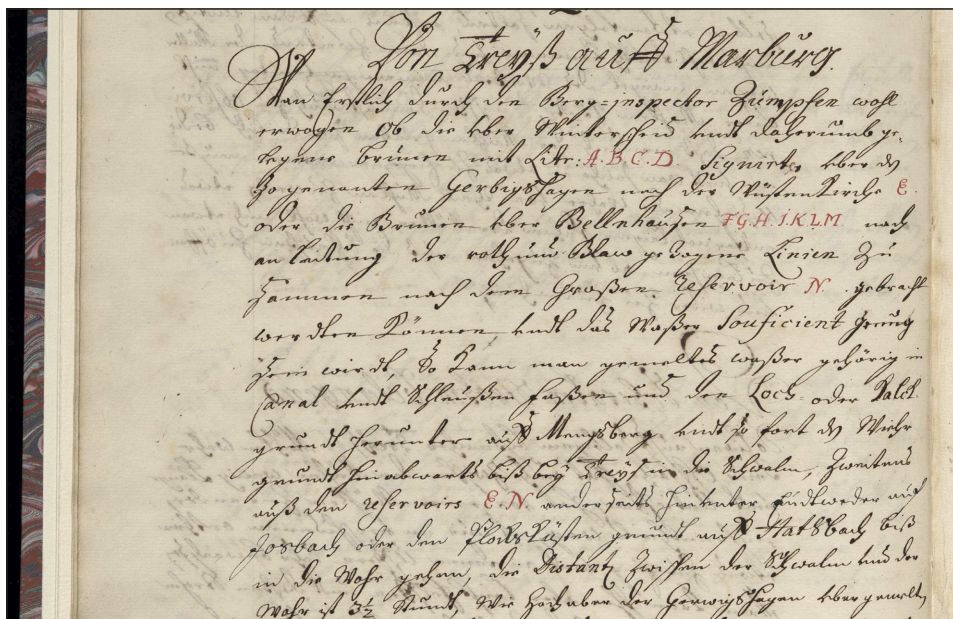 Von Treÿß auff Marburg.
Wan Erstlich durch den Berg=inspector Zumpfen wohl
erwogen Ob die über Winterscheid undt daherumb ge-
legene brunen mit Litr: A. B. C. D. Signirte, über dß
so genanten Gerbigshagen nach der Wüsten Kirche E.
oder die Brunen über Bellnhausen F. G. H. I. K. L. M. nach
anleitung der roth und Blaw gezogene Linien Zu
sammen nach dem Großen reservoir N. gebracht
werdten Können undt das Waßer Souficient genug
sein wirdt, So Kann man gemeltes waßer gehörig in
Canal undt Schleußen faßen und den Loch= oder Kalck
grundt herunter auff Mengsberg undt so fort dß Wiehr
grundt hinabwarts biß beÿ Treÿs in die Schwalm, Zweitens
auß den reservoirs E. N. anderseits hinunter Endtweder auf
Josbach oder den grundt auff Hatsbach biß
in die Wohr gehen, die Distantz Zwischen der Schwalm und der
Wohr ist 3½ Stundt, Wie hoch aber der Gerwigshagen über gemelten